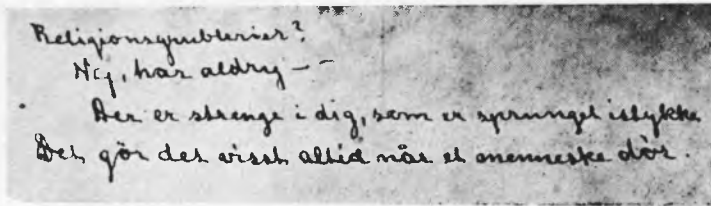 Religionsgrublerier?
Nej, har aldrig —
Der er strenge i dig, som er sprunget istykke
Det gör det visst altid når et menneske dör.